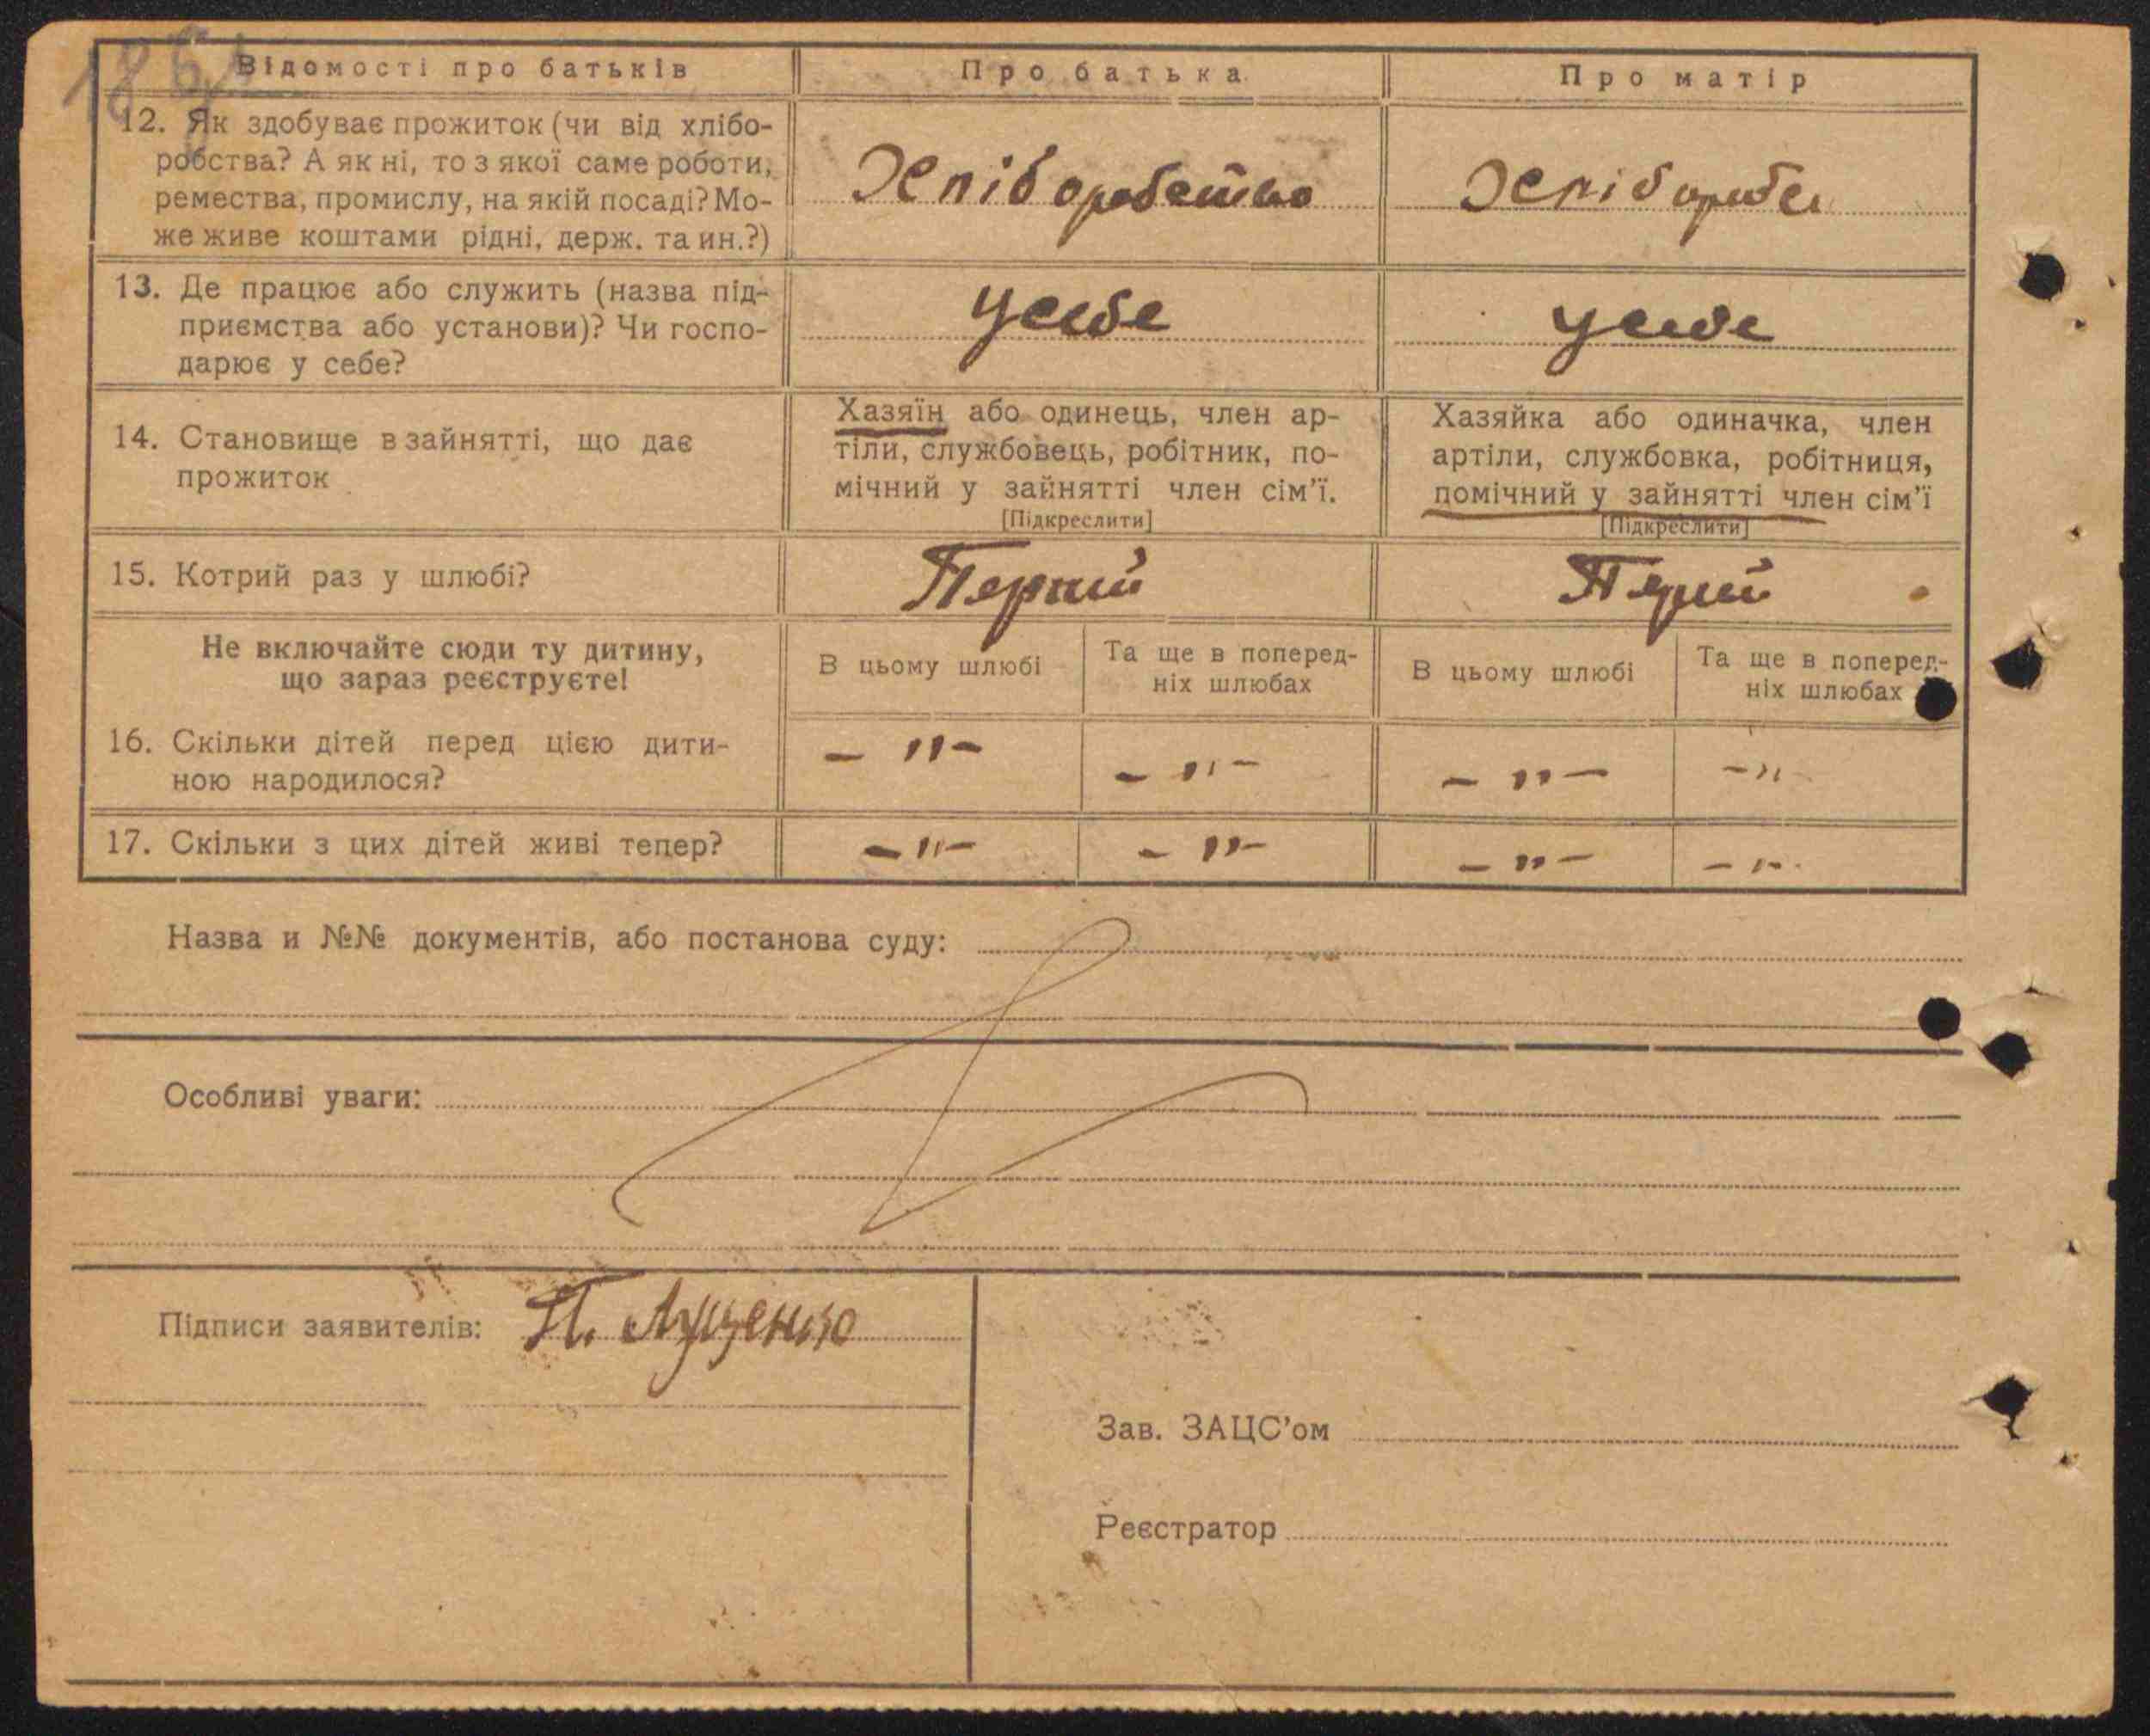 Відомості про батьків
Про батька
Про матір
12. Як здобуває прожиток (чи від хлібо-
робства? А як ні, то з якої саме роботи,
ремества, промислу, на якій посаді? Мо-
же живе коштами рідні, держ. та ин.?)
Хліборобство
13. Де працює або служить (назва під-
приємства або установи)? Чи госпо-
дарює у себе?
усебе
усебе
14. Становище в зайнятті, що дає
прожиток
Хазяїн або одинець, член ар-
тіли, службовець, робітник, по-
мічний у зайнятті член сім'ї.
[Підкреслити]
Хазяйка або одиначка, член
артіли, службовка, робітниця,
помічний у зайнятті член сім'ї
[Підкреслити]
15. Котрий раз у шлюбі?
Не включайте сюди ту дитину,
що зараз реєструєте!
В цьому шлюбі
Та ще в поперед-
ніх шлюбах
В цьому шлюбі
Та ще в поперед-
ніх шлюбах
16. Скільки дітей перед цією дити-
ною народилося?
– " –
– " –
– " –
– " –
17. Скільки з цих дітей живі тепер?
– " –
– " –
– " –
– " –
Назва и №№ документів, або постанова суду:
Особливі уваги:
Підписи заявителів: П. Луценко
Зав. ЗАЦС'ом
Реєстратор